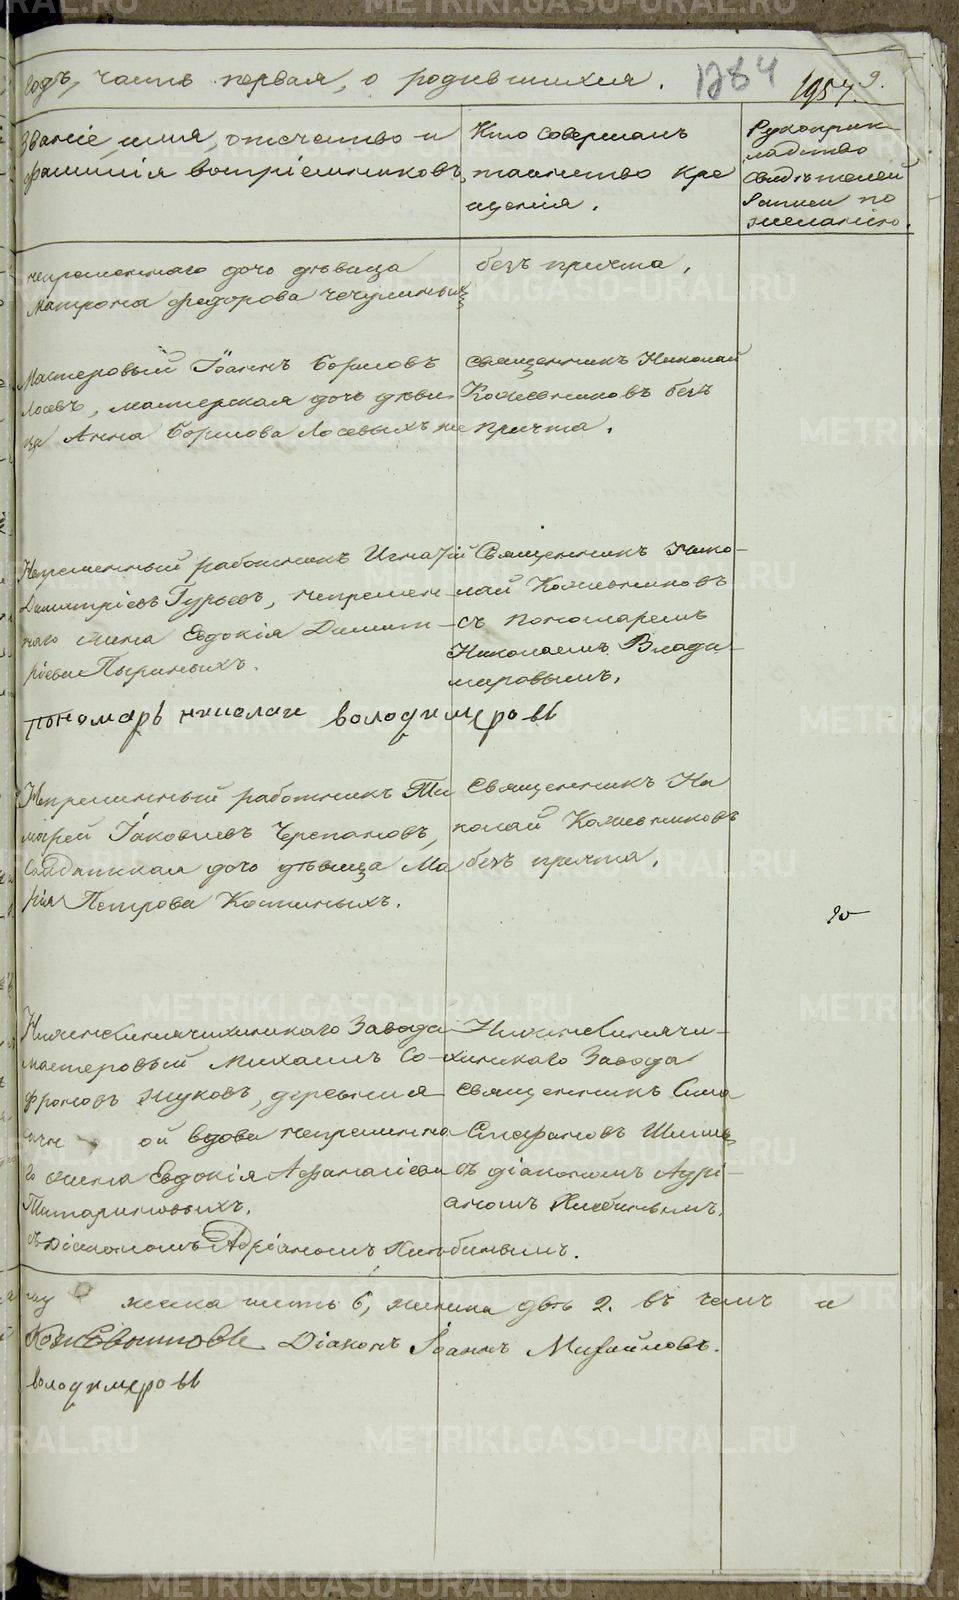 годъ, часть первая, о родившихся. 1284 1957. 9.
Званіе, имя, отечество и
фамилія воспріемниковъ
Кто совершалъ
таинство кре
щенія.
Рукоприк
ладство
свидѣтелей
записи по
желанію.
непременнаго дочь дѣвица
Матрона Федорова Чечулиныхъ
безъ причта.
Мастеровый Іоаннъ Борисовъ
Лосевъ, мастерская дочь дѣви
ца Анна Борисова Лосевыхъ же
Священникъ Николай
Кожевниковъ безъ
причта.
Непременный работникъ Игнатій
Димитріевъ Гурьевъ, непремен
наго жена Евдокія Димит
ріева Пыриныхъ.
Священникъ Нико
лай Кожевниковъ
съ пономаремъ
Николаемъ Влади
мировымъ.
пономарь николаи володимеровъ
Непременный работникъ Ти
мофей Іаковлевъ Черепановъ,
Солдатская дочь дѣвица Ма
рія Петрова Костиныхъ.
Священникъ Ни
колай Кожевниковъ
безъ причта.
Нижнесинячихинскаго Завода
мастеровый Михаилъ Со
фроновъ Жуковъ, деревни
ой вдова непременна
го жена Евдокія Афанасіева
Титариновыхъ.
съ Діакономъ Адріаномъ Хлябинымъ.
Нижнесинячи
хинскаго Завода
священникъ Сима
Стефановъ Шиш
съ діакономъ Адрі
аномъ Хлябинымъ.
му жеска шесть 6, женска двѣ 2. въ чемъ и
Кожевниковъ Діаконъ Іоаннъ Михайловъ.
володимеровъ
METRIKI.GASO-URAL.RU